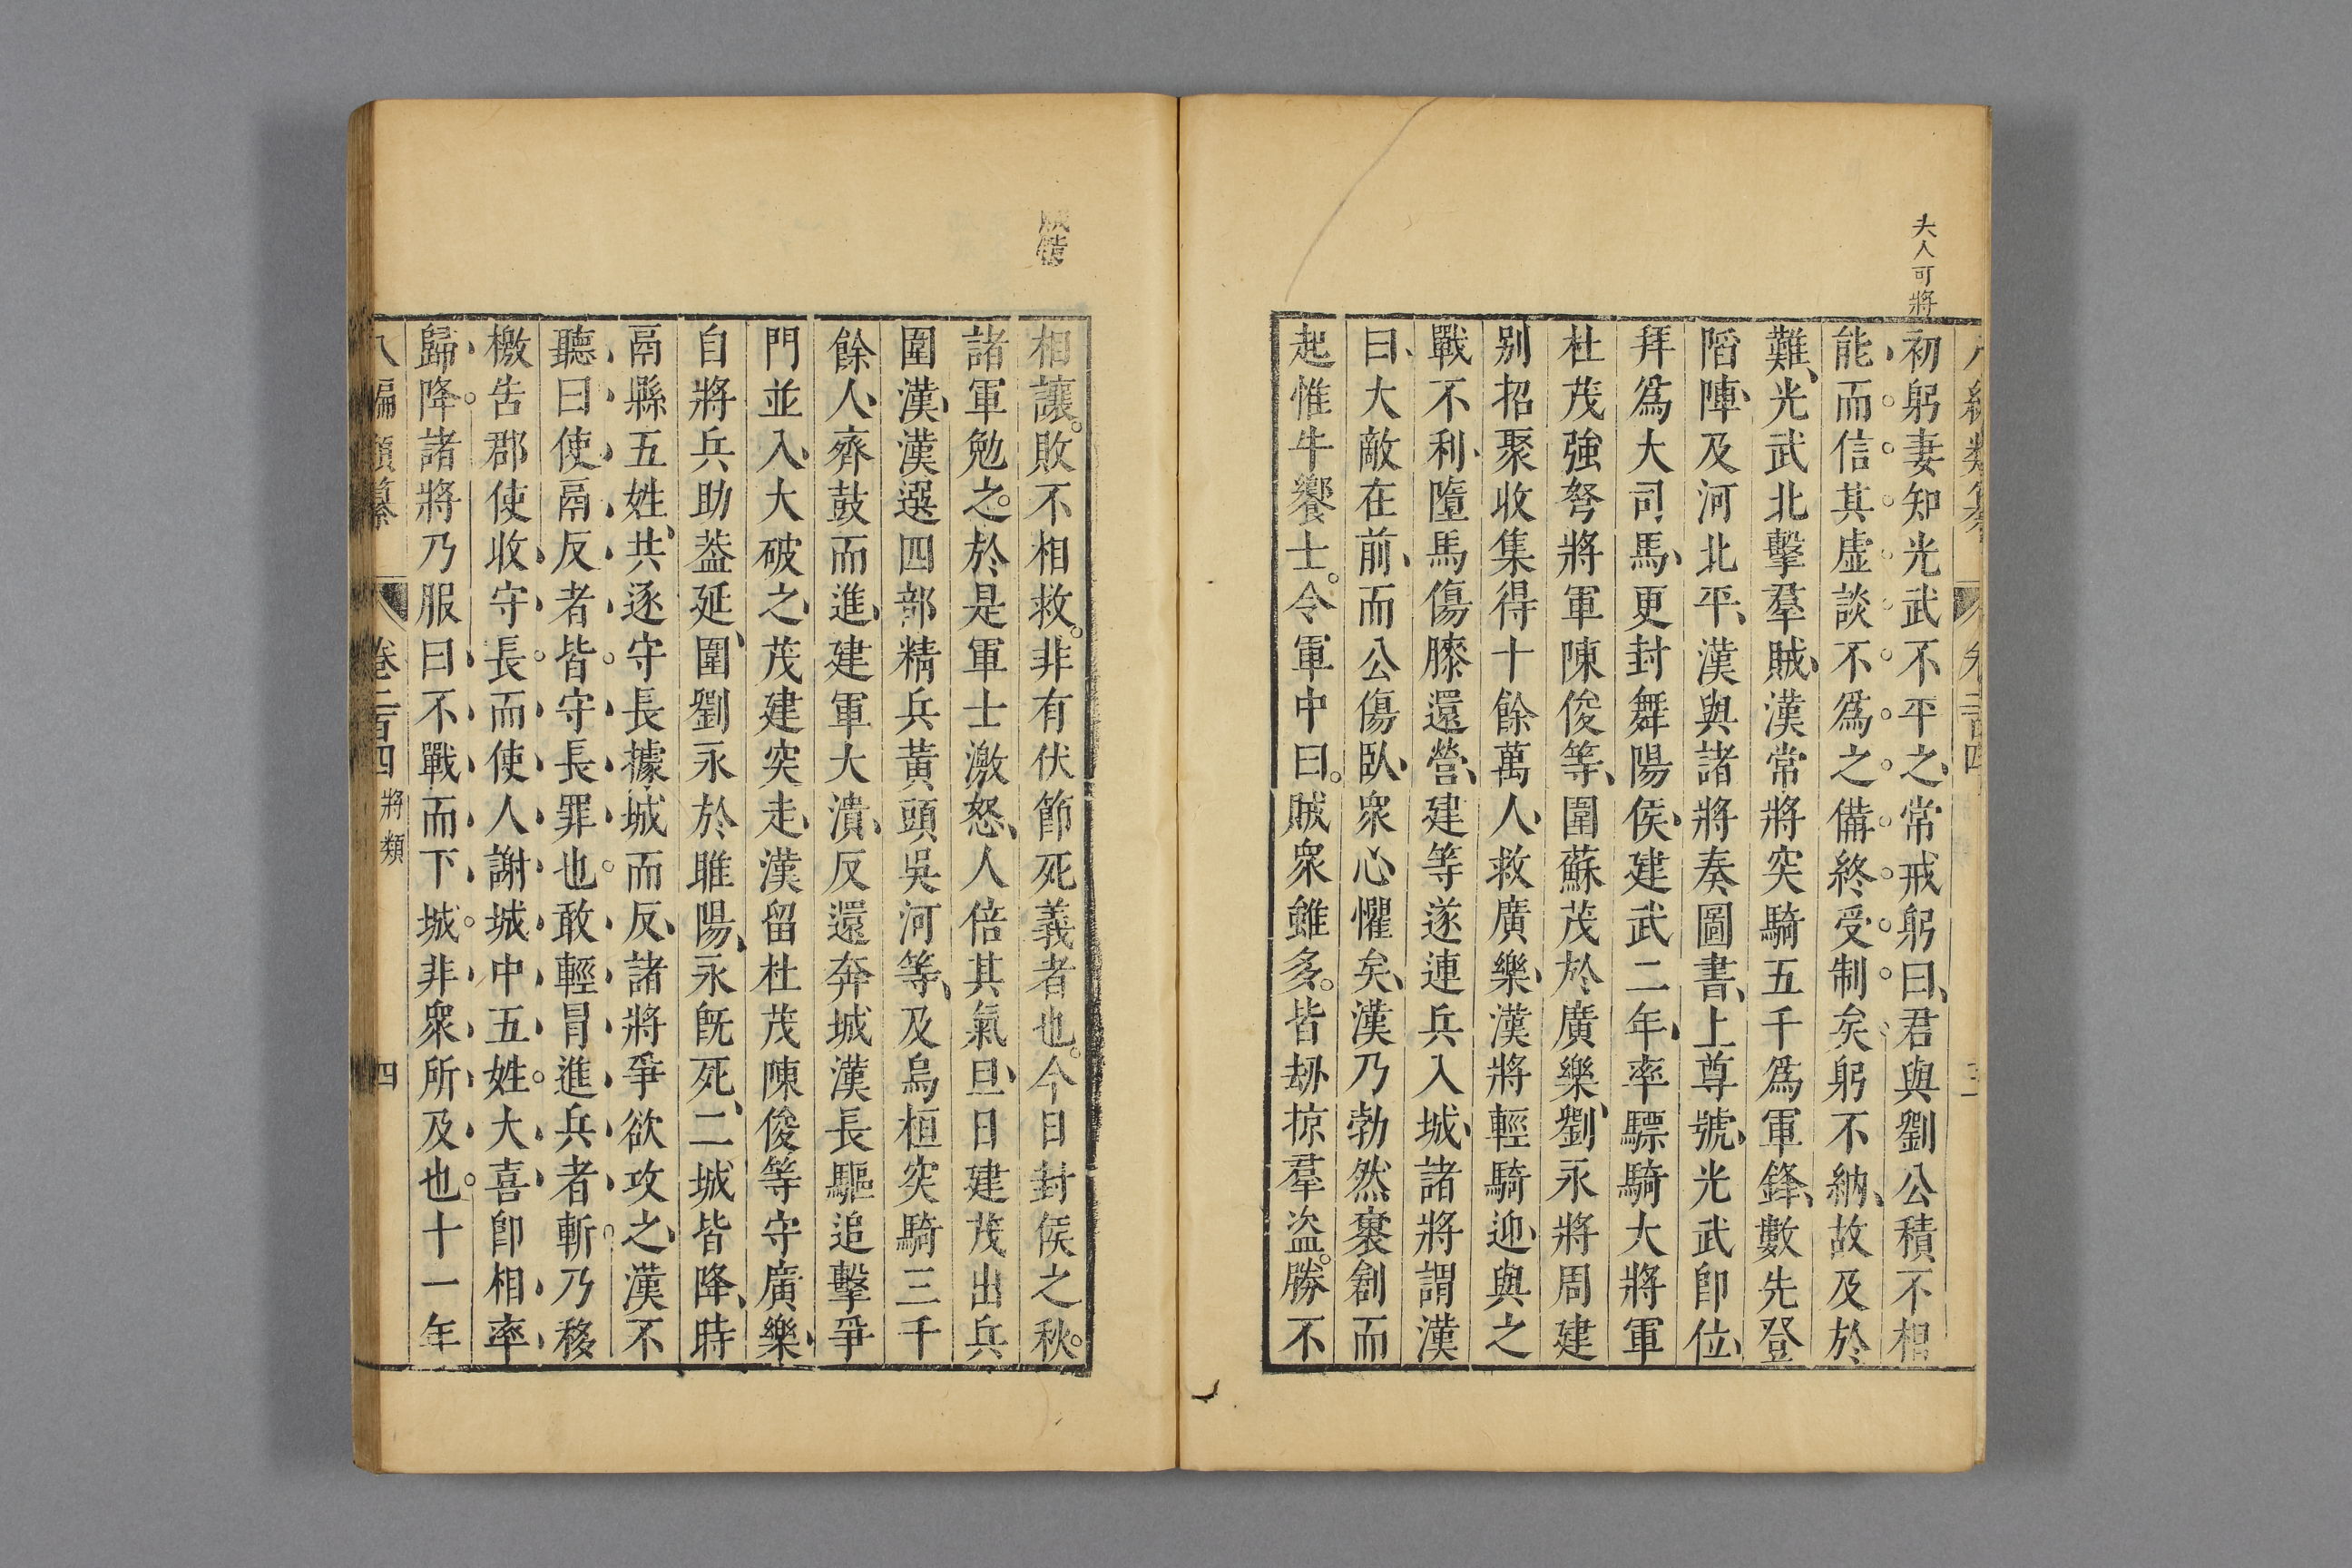 夫人可將
初躬妻知光武不平之、常戒躬曰、君與劉公積不相
能、而信其虛談、不爲之備、終受制矣、躬不納、故及於
難、光武北擊羣賊、漢常將突騎五千爲軍鋒、數先登
陷陣、及河北平、漢與諸將奏圖書、上尊號、光武卽位、
拜爲大司馬、更封舞陽侯、建武二年、率驃騎大將軍
杜茂強弩將軍陳俊等、圍蘇茂於廣樂、劉永將周建
别招聚收集得十餘萬人、救廣樂、漢將輕騎迎、與之
戰不利、墮馬傷膝還營、建等遂連兵入城、諸將謂漢
曰、大敵在前、而公傷臥、衆心懼矣、漢乃勃然裹創而
起惟牛饗士。令軍中曰。賊衆雖多。皆刼掠羣盜。勝不
相讓。敗不相救。非有伏節死義者也。今日封侯之秋。
諸軍勉之。於是軍士激怒、人倍其氣、旦日建茂出兵
圍漢、漢選四部精兵黃頭吳河等、及烏桓突騎三千
餘人、齊鼓而進、建軍大潰、反還奔城漢長驅追擊爭
門並入、大破之、茂建突走、漢留杜茂陳俊等守廣樂、
自將兵助葢延、圍劉永於睢陽、永旣死、二城皆降、時
鬲縣五姓、共逐守長據城而反、諸將爭欲攻之、漢不
聽、曰、使鬲反者、皆守長罪也。敢輕冒進兵者斬。乃移
檄告郡使收守長。而使人謝城中五姓。大喜卽相率
歸降。諸將乃服曰、不戰而下城。非衆所及也。十一年
八編類纂 卷二百四 將類 四